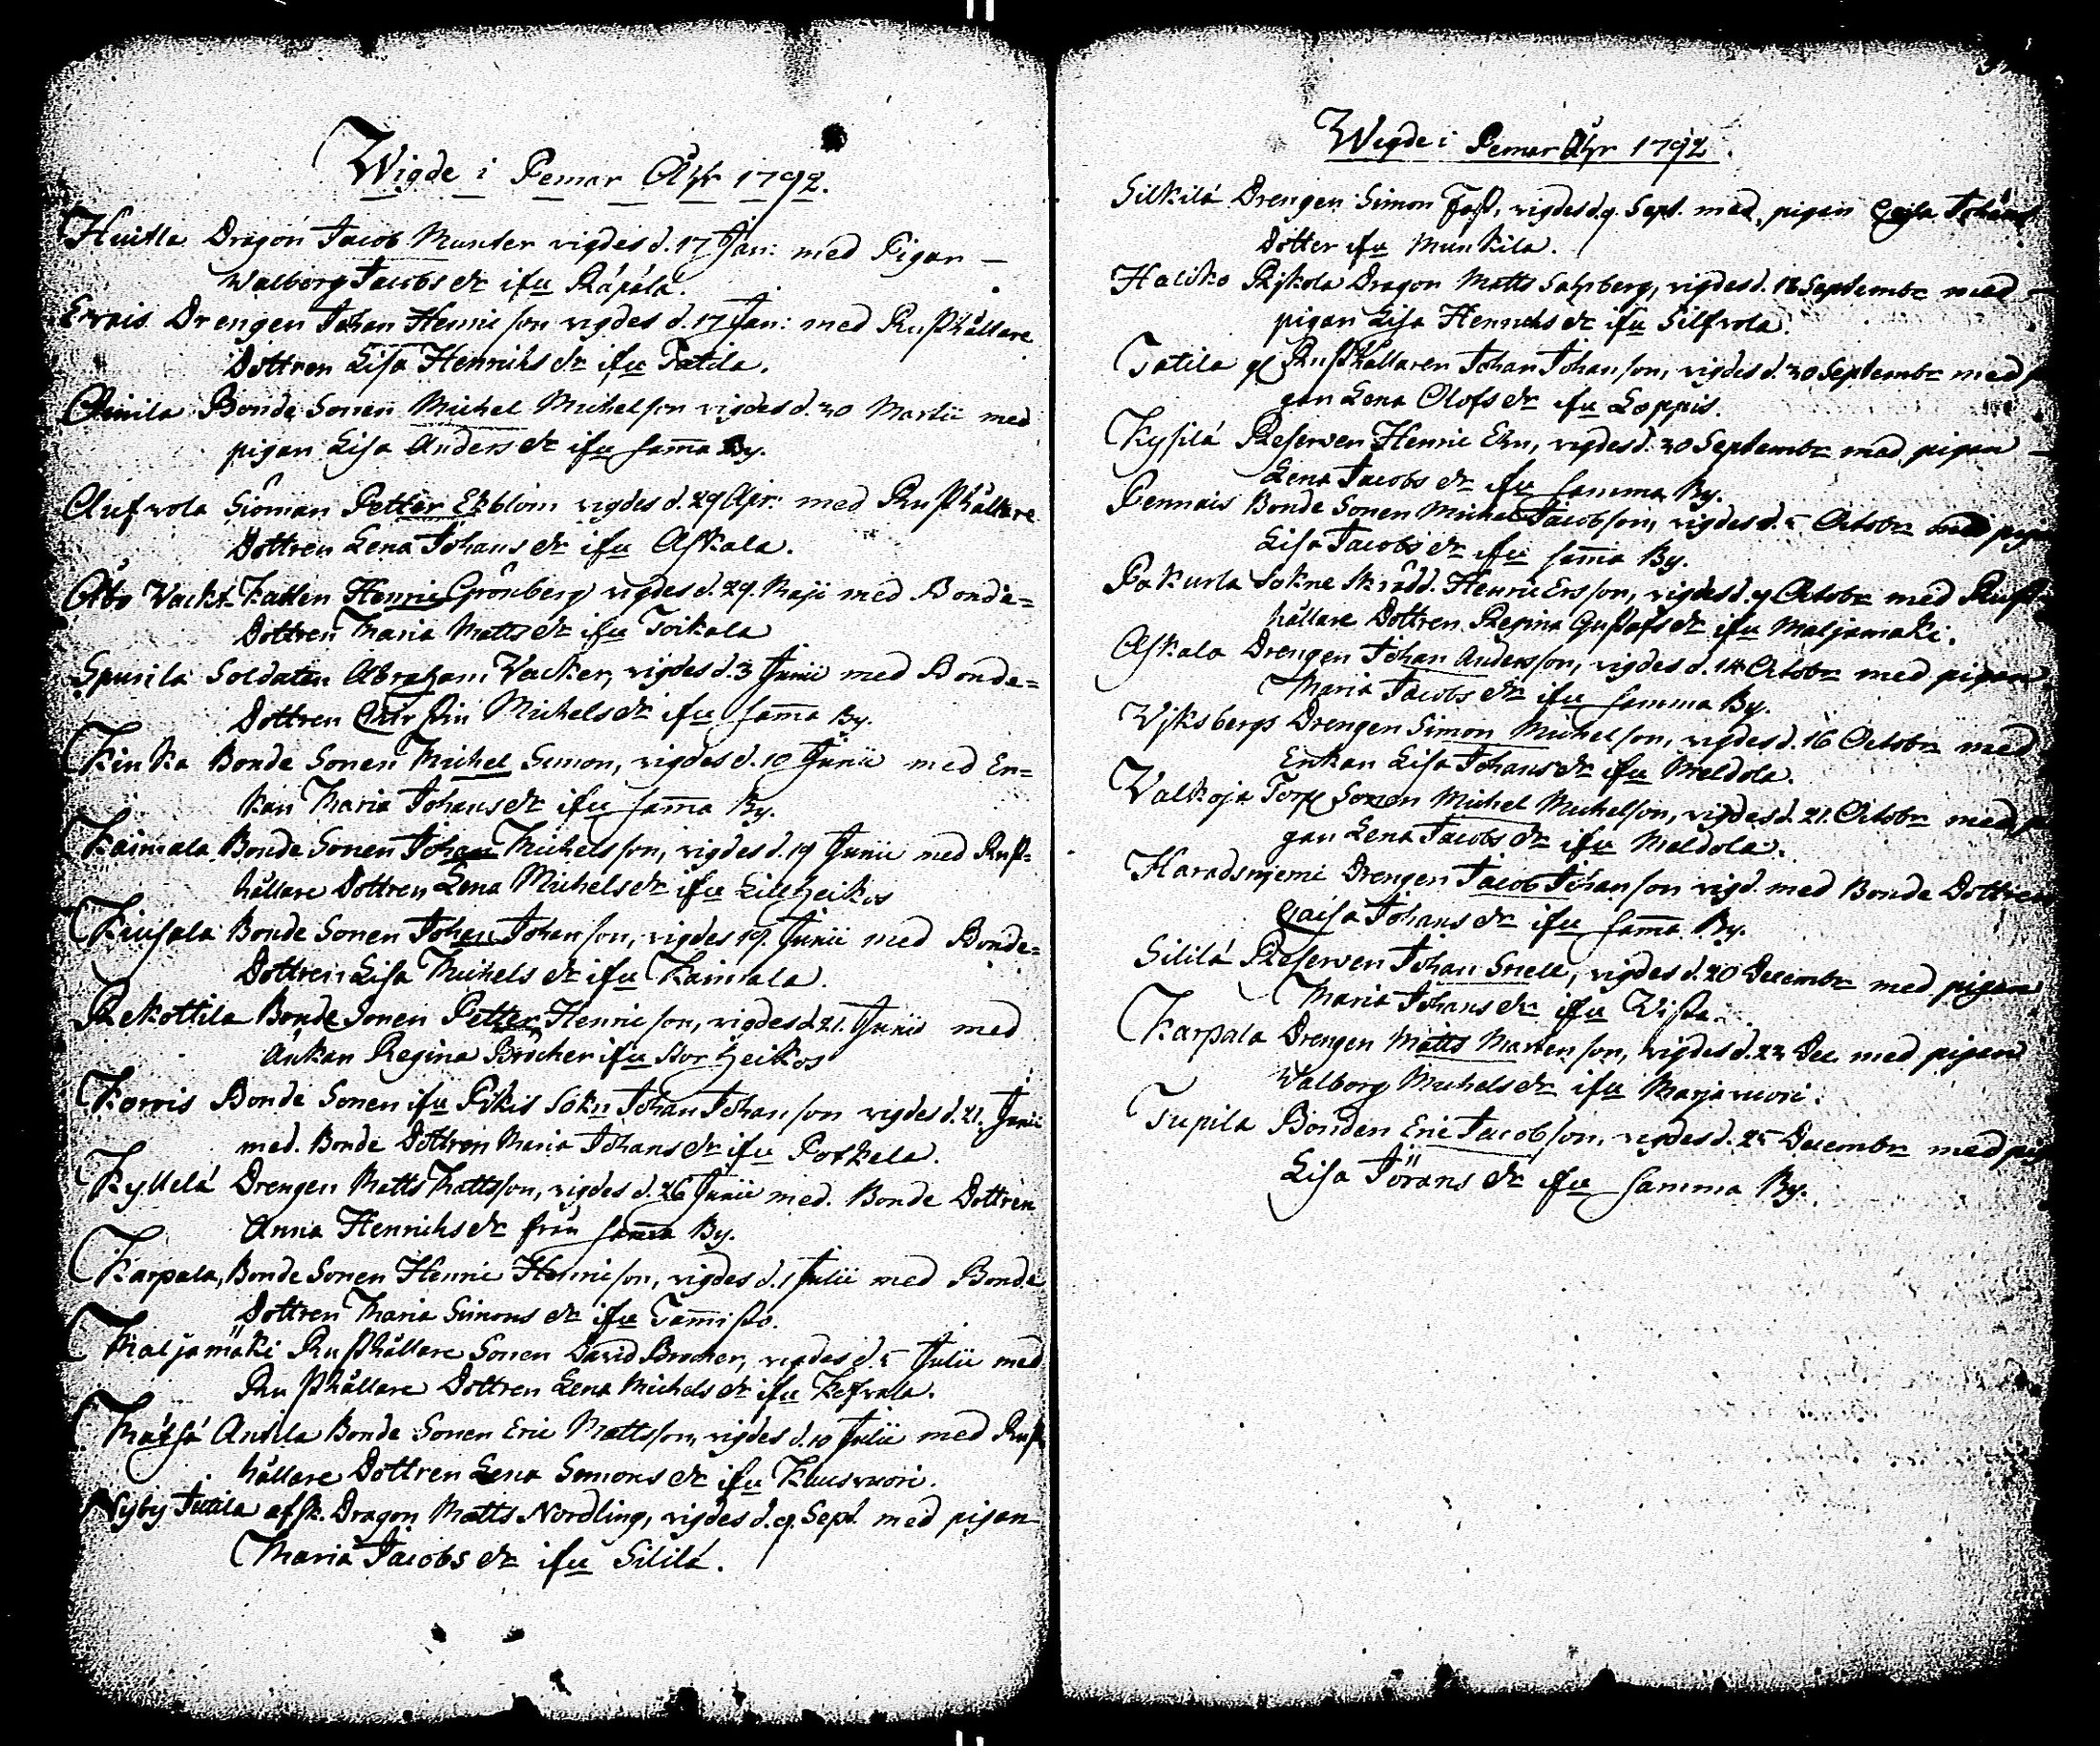 Wigde i Pemar Åhr 1792.
Huitla Dragon Jacob Munter vigdes d. 17 Jan: med Pigan —
Walborg Jacobs dr ifrå Räpälä.
Ervais Drengen Johan Henricson vigdes d. 17 Jan: med Rusthållare
Dottren Lisa Henrichs dr ifrå Tatila.
Bonde Sonen Michel Michelson vigdes d. 20 Martii med
pigan Lisa Anders dr ifrå sam̄a By.
Aufvola Siöman Petter Ekblom vigdes d. 29 Apr: med Rusthållare
Dottren Lena Johans dr ifrå Askala.
Åbo Vackt-Katten Henric Grönberg vigdes d. 29. Maji med Bonde=
Dottren Maria Matts dr ifrå Toikala
Spurila Soldaten Abraham Vacker, vigdes d. 3 Junii med Bonde=
Dottren Christin Michels dr ifrå sam̄a By.
Kinka Bonde Sonen Michel Simon, vigdes d. 10 Junii med En=
kan Maria Johans dr ifrå sam̄a By.
Kaimala Bonde Sonen Johan Michelsson, vigdes d. 19 Junii med Rust=
hållare Dottren Lena Michels dr ifrå Lillheikos
Kiusala Bonde Sonen Johan Johanson, vigdes 19. Junii med Bonde=
Dottren Lisa Michels dr ifrå Kaimala.
Rekottila Bonde Sonen Petter Henricson, vigdes d. 21. Junii med
Änkan Regina Bröcher ifrå Storheikos
Korris Bonde Sonen ifrå Pikis Sokn Johan Johanson vigdes d. 21. Junii
med. Bonde Dottren Maria Johans dr ifrå Porkela.
Kyllelä Drengen Matts Mattsson, vigdes d. 26 Junii med. Bonde Dottren
Anna Henrichs dr från sam̄a By.
Karpala, Bonde Sonen Henric Henricson, vigdes d. 1 Julii med Bonde
Dottren Maria Simons dr ifrå Tam̄isto.
Maljamäki Rusthållare Sonen David Brocher, vigdes d. 5 Julii med
Rusthållare Dottren Lena Michels dr ifrå Kefvala.
Antila Bonde Sonen Eric Mattsson, vigdes d. 10 Julii med Rust
hållare Dottren Lena Simons dr ifrå Kuusvuori.
Nyby Juttila afsk. Dragon Matts Nordling, vigdes d. 9. Sept. med pigan
Maria Jacobs dr ifrå Sililä.
Wigde i Pemar Åhr 1792.
Silkilä Drengen Simon Fast, vigdes d. 9. Sept. med pigan Caisa Johans
Dotter ifrå Munkila.
Haliko Rijkola Dragon Matts Sahlberg, vigdes d. 18 Septembr med —
pigan Lisa Henrichs dr ifrå Silfvola.
Tatila gl Rusthållaren Johan Johanson, vigdes d. 30 Septembr med
gan Lena Olofs dr ifrå Loppis.
Kysilä Reserven Henric Ehn, vigdes d. 30 Septembr med pigan —
Lena Jacobs dr ifrå samma By.
Pennais Bonde Sonen Michel Jacobson, vigdes d. 5 Octobr med pigan
Lisa Jacobs dr ifrå sam̄a By.
Pakurla Sokne Skrädd. Henric Ersson, vigdes d. 9 Octobr med Rust
hållare Dottren Regina Gustafs dr ifrå Maljamäki.
Askala Drengen Johan Andersson, vigdes d. 14 Octobr med pigan
Maria Jacobs dr ifrå samma By.
Wjksbergs Drengen Simon Michelson, vigdes d. 16 Octobr med
Enkan Lisa Johans dr ifrå Meldola.
Valkoja Torp Sonen Michel Michelson, vigdes d. 21. Octobr med
gan Lena Jacobs dr ifrå Meldola.
Haradsnjemi Drengen Jacob Johanson vigd. med Bonde Dottren
Caisa Johans dr ifrå sam̄a By.
Sililä Reserven Johan Snell, vigdes d. 20 Decembr med pigan
Maria Johans dr ifrå Vista.
Karpala Drengen Matts Mårtenson, vigdes d. 22 Dec. med pigan
Walborg Michels dr ifrå Marjavuori.
Tupila Bonden Eric Jacobson, vigdes d. 25 Decembr med pig
Lisa Jörans dr ifrå samma By.